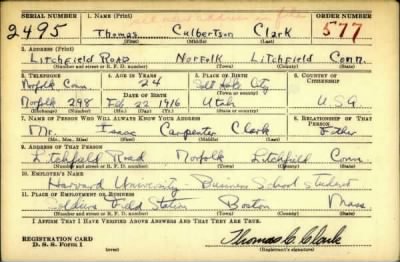 SERIAL NUMBER 1. NAME (Print) ORDER NUMBER
2495 Thomas Culbertson Clark 577
(First) (Middle) (Last)
2. ADDRESS (Print)
Litchfield Road Norfolk Litchfield Conn.
(Number and street or R. F. D. number) (Town) (County) (State)
3. TELEPHONE 4. AGE IN YEARS 5. PLACE OF BIRTH 6. COUNTRY OF CITIZENSHIP
Norfolk, Conn. 24 Salt Lake City
DATE OF BIRTH
Norfolk 298 Feb 22 1916 Utah U.S.A
(Exchange) (Number) (Mo.) (Day) (Yr.) (State or country)
7. NAME OF PERSON WHO WILL ALWAYS KNOW YOUR ADDRESS 8. RELATIONSHIP OF THAT PERSON
Mr. Isaac Carpenter Clark Father
(Mr., Mrs., Miss) (First) (Middle) (Last)
9. ADDRESS OF THAT PERSON
Litchfield Road Norfolk Litchfield Conn
(Number and street or R. F. D. number) (Town) (County) (State)
10. EMPLOYER'S NAME
Harvard University - Business School Student
11. PLACE OF EMPLOYMENT OR BUSINESS
Soldiers Field Station Boston Mass.
(Number and street or R. F. D. number) (Town) (County) (State)
I AFFIRM THAT I HAVE VERIFIED ABOVE ANSWERS AND THAT THEY ARE TRUE.
REGISTRATION CARD
D. S. S. Form 1 (over) Thomas C. Clark
(Registrant's signature)